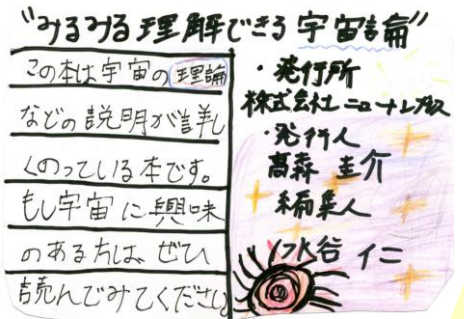 "みるみる理解できる宇宙論"
この本は宇宙の理論
などの説明が詳し
くのっている本です。
もし宇宙に興味
のある方は、ぜひ
読んでみてください
・発行所
株式会社ニュートンプレス
・発行人
高森 圭介
編集人
水谷 仁